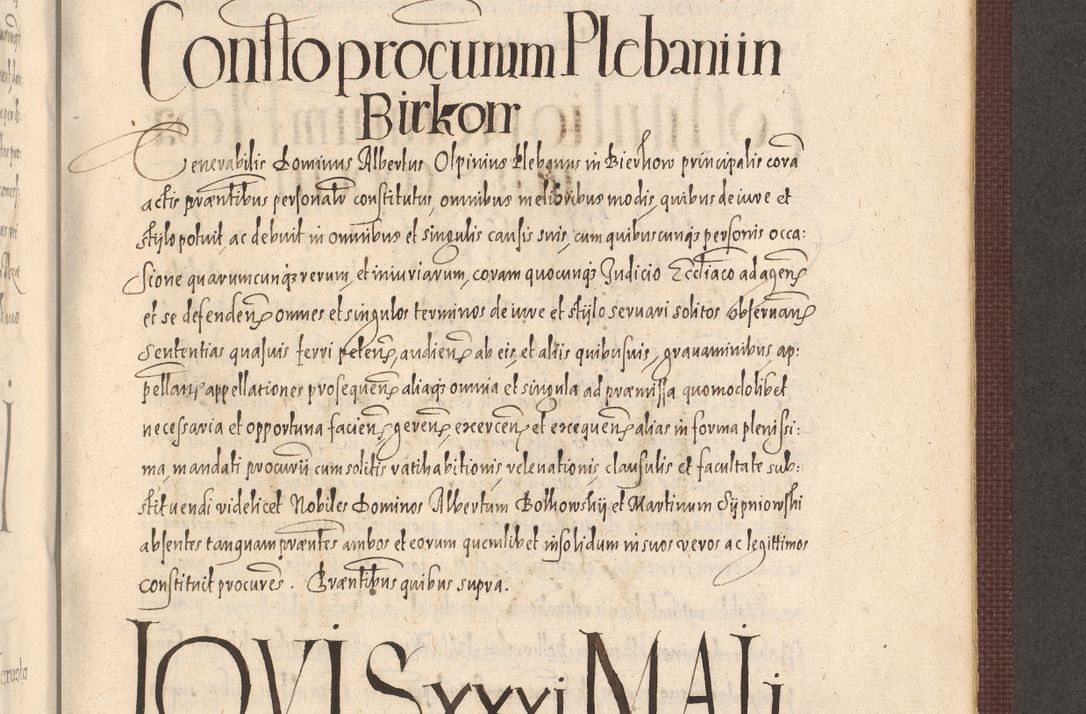 Constto procurum Plebani in
Birkow
Venerabilis Dominus Albertus Olpinius Plebanus in Bierkow principalis corā
actis præntibus personalr constitutus, omnibus melioribus modis, quibus de iure et
stylo potuit, ac debuit in omnibus et singulis causis suis, cum quibuscunqз personis occa:
sione quarumcunqз rerum, et iniuriarum, coram quocunqз Iudicio Ecctiaco ad agen
et se defenden omnes et singulos terminos de iure et stylo servari solitos observan
Sententias quasuis ferri peten, audien ab eis, et aliis quibusuis, gravaminibus ap:
pellan appellationes prosequen aliaqз omnia et singula ad præmissa quomodolibet
necessaria et opportuna facien, geren, exercen et exequen alias in forma plenissi:
ma, mandati procurii cum solitis ratihabitionis relevationis clausulis et facultate sub:
stituendi videlicet Nobiles Dominos Albertum Bolkowskij et Martinum Sypniowski
absentes tanquam præntes ambos et eorum quemlibet insolidum in suos veros ac legittimos
constituit procures. Præntibus quibus supra.
IOVIS xxxi MAIi